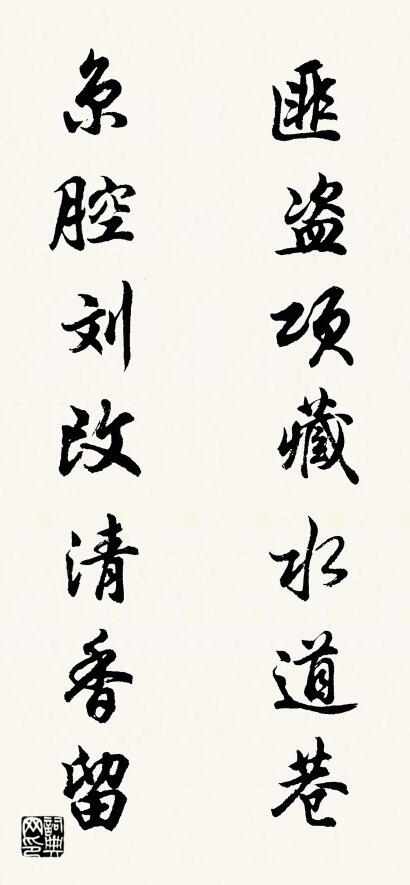 匪盗项藏水道巷
京腔刘改清香留
詞典网印